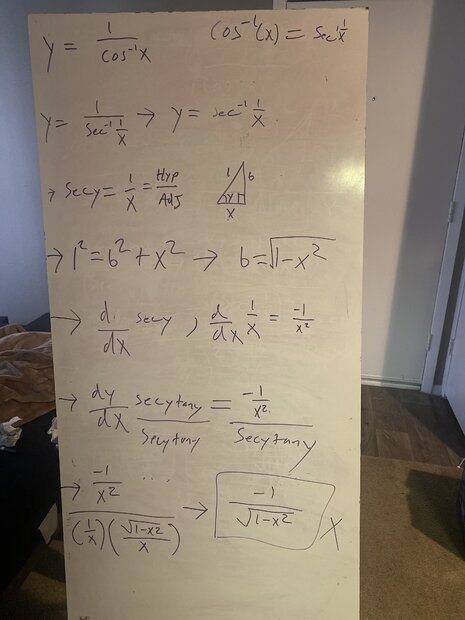 y = 1/cos⁻¹x    cos⁻¹(x) = sec⁻¹ 1/x
y = 1/(sec⁻¹ 1/x) → y = sec⁻¹ 1/x
→ sec y = 1/x = Hyp/Adj    1 b y x
→ 1² = b² + x² → b = √(1-x²)
→ d/dx sec y , d/dx 1/x = -1/x²
→ dy/dx secytany/secytany = (-1/x²)/secytany
→ (-1/x² ...)/((1/x)(√(1-x²)/x)) → -1/√(1-x²) X